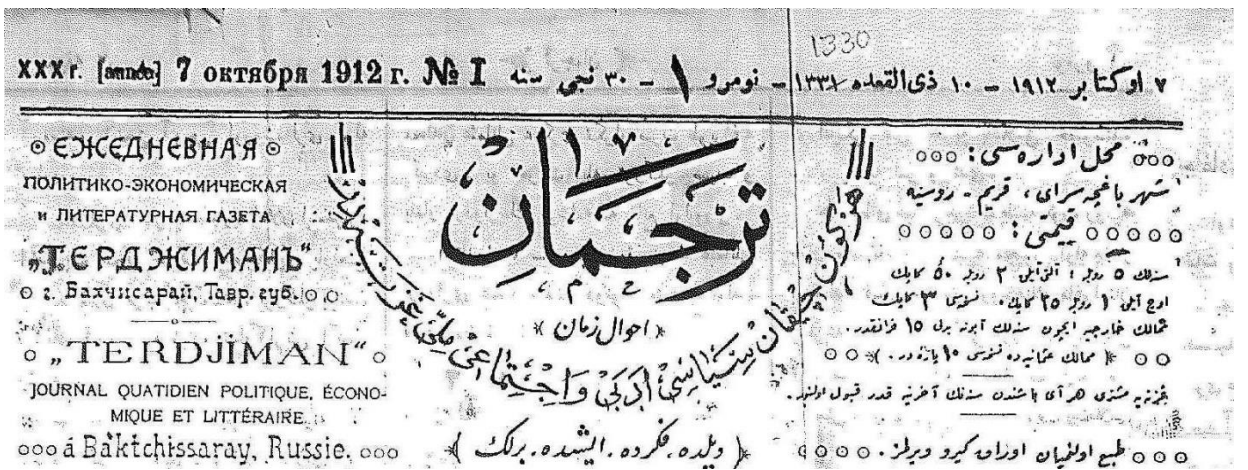 1330
XXX г. [année] 7 октября 1912 г. № I ٧ اوكتابر ١٩١٢ – ١٠ ذى القعده ١٣٣١ – نومرو ١ – ٣٠ نجى سنه
ЕЖЕДНЕВНАЯ
ПОЛИТИКО-ЭКОНОМИЧЕСКАЯ
и ЛИТЕРАТУРНАЯ ГАЗЕТА
„ТЕРДЖИМАНЪ“
г. Бахчисарай, Тавр. губ.
„TERDJIMAN“
JOURNAL QUATIDIEN POLITIQUE, ÉCONO-
MIQUE ET LITTÉRAIRE
á Baktchissaray, Russie.
ترجمان
احوال زمان
هر كون چيقان سياسى، ادبى و اجتماعى ملى غزته در
ديلده، فكرده، ايشده، برلك
محل اداره سى:
شهر باغچه سراى، قريم – روسيه
قيمتى:
سنه لك ٥ روبل؛ آلتى آيلق ٢ روبل ٥٠ كاپك
اوچ آيلق ١ روبل ٢٥ كاپك. نسخه سى ٣ كاپك
ممالك خارجيه ايچون سنه لك آبونه بدلى ١٥ فرانقدر.
ممالك عثمانيه ده نسخه سى ١٠ پاره در.
غزته يه مشترى هر آى باشندن سنه نك آخرينه قدر قبول اولنور.
طبع اولنميان اوراق كيرو ويرلمز.